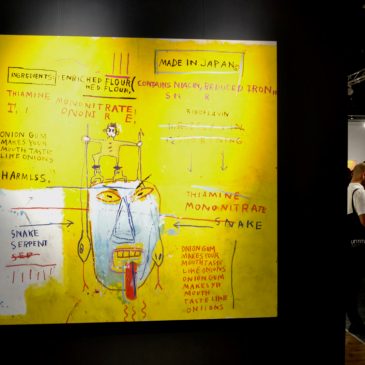 MADE IN JAPAN©
INGREDIENTS: ENRICHED FLOUR
HED FLOUR,
CONTAINS NIACIN, REDUCED IRON,
THIAMINE
MONONITRATE
ONONI R E,
RIBOFLAVIN
ONION GUM
MAKES YOUR
MOUTH TASTE
LIKE ONIONS
HARMLSS.
THIAMINE
MONONITRATE
SNAKE
SNAKE
SERPENT
SEP
ONION GUM
MAKES YOUR
MOUTH TASTE
LIKE ONIONS
ONION GUM
MAKES YR
MOUTH
TASTE LIKE
ONIONS